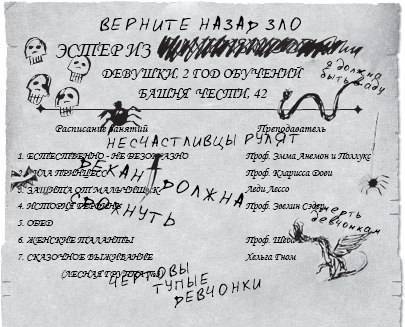 ВЕРНИТЕ НАЗАД ЗЛО
ЭСТЕР ИЗ
Я ДОЛЖНА БЫТЬ В АДУ
ДЕВУШКИ, 2 ГОД ОБУЧЕНИЯ
БАШНЯ ЧЕСТИ, 42
Расписание занятий Преподаватель
НЕСЧАСТЛИВЦЫ РУЛЯТ
1. ЕСТЕСТВЕННО - НЕ БЕЗОБРАЗНО Проф. Эмма Анемон и Поллукс
ДЕКАН ДОЛЖНА СДОХНУТЬ
2. ПРИНЦЕСС Проф. Кларисса Дови
3. ЗАЩИТА ОТ МАЛЬЧИШЕК Леди Лессо
4. ИСТОРИЯ ГЕРОИНЬ Проф. Эвелин Сэдер
5. ОБЕД
СМЕРТЬ ДЕВЧОНКАМ
6. ЖЕНСКИЕ ТАЛАНТЫ Проф. Шиба
7. СКАЗОЧНОЕ ВЫЖИВАНИЕ Хельга Гном
(ЛЕСНАЯ ГРУППА
ЧЕРТОВЫ
ТУПЫЕ
ДЕВЧОНКИ